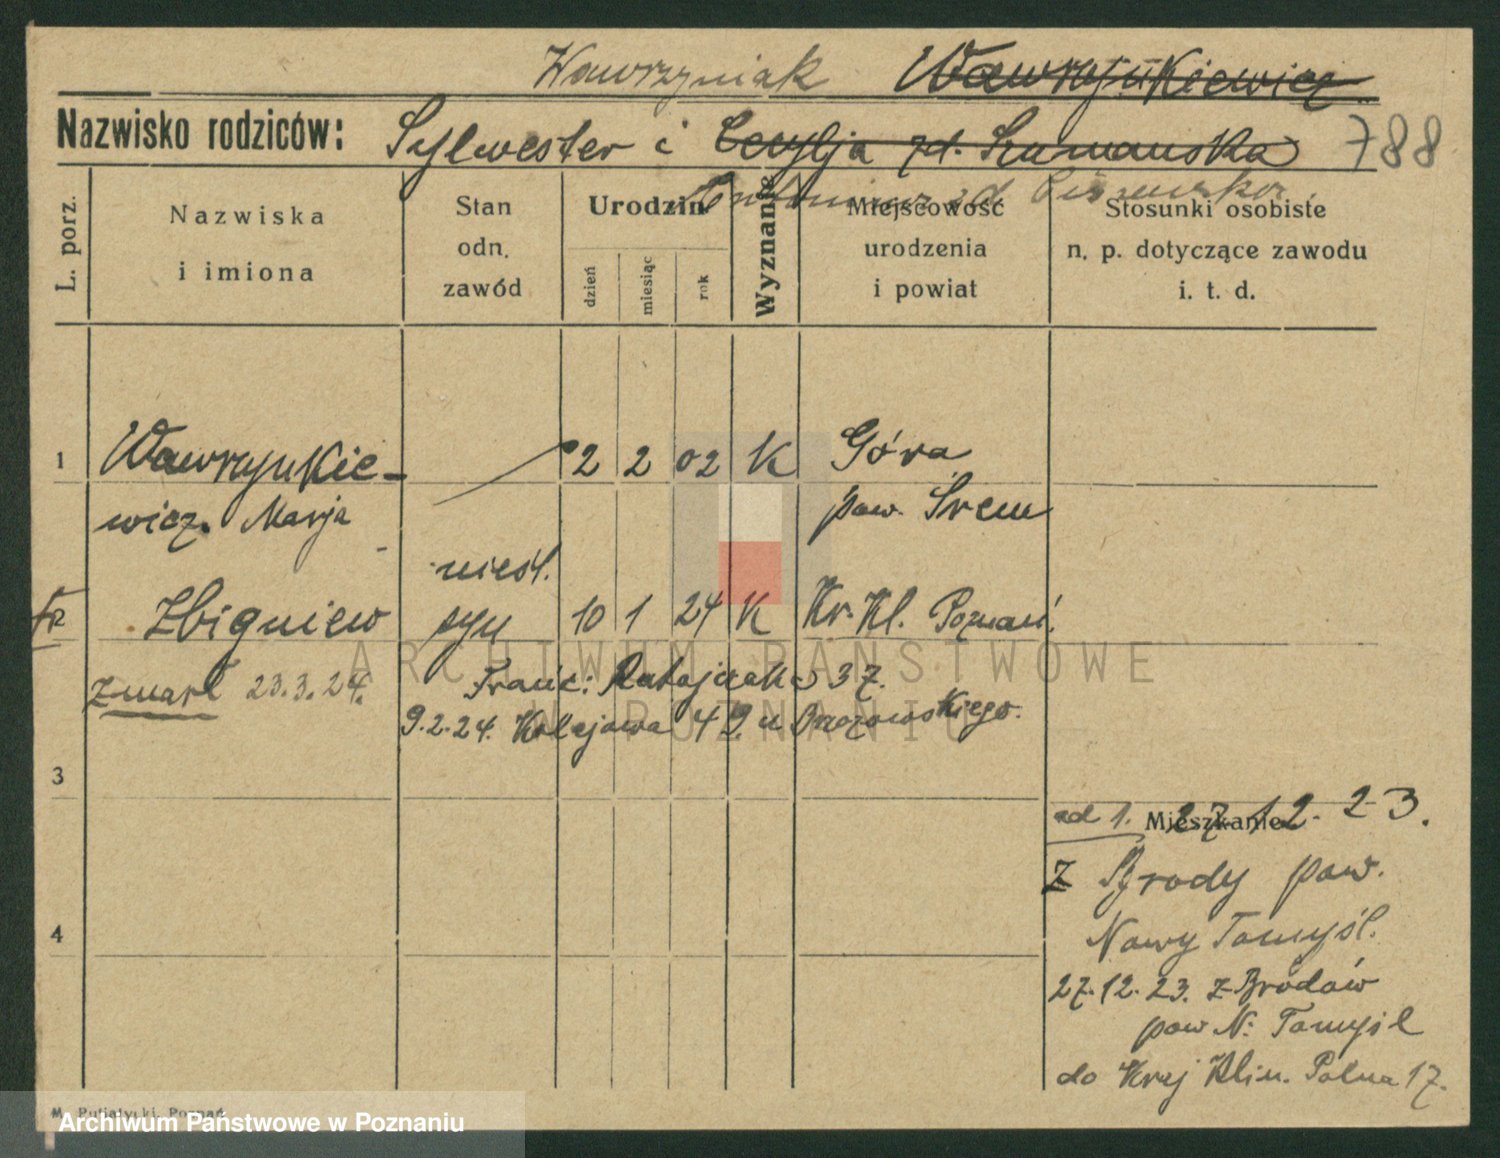 Wawrzyniak Wawrzynkiewicz
Nazwisko rodziców: Sylwester i Cecylja zd. Szumańska 788
Antonina zd.
L. porz.
Nazwiska
i imiona
Stan
odn.
zawód
Urodzin
dzień
miesiąc
rok
Wyznanie
Miejscowość
urodzenia
i powiat
Stosunki osobiste
n. p. dotyczące zawodu
i. t. d.
1 Wawrzynkie- 2 2 02 K Góra
wicz. Marja pow. Śrem
nieśl.
2 Zbigniew syn 10 1 24 K Kr. Kl. Poznań.
zmarł 23.3.24. Franc. Ratajczaka 37.
9.2.24. Kolejowa 49 u Brzozowskiego.
3
ad 1. Mieszkanie 27.12.23.
z Brody pow.
4 Nowy Tomyśl.
27.12.23. z Brodów
pow N. Tomyśl
do Kraj Klin. Polna 17.
M. Putiatycki, Poznań
ARCHIWUM PAŃSTWOWE
W POZNANIU
Archiwum Państwowe w Poznaniu